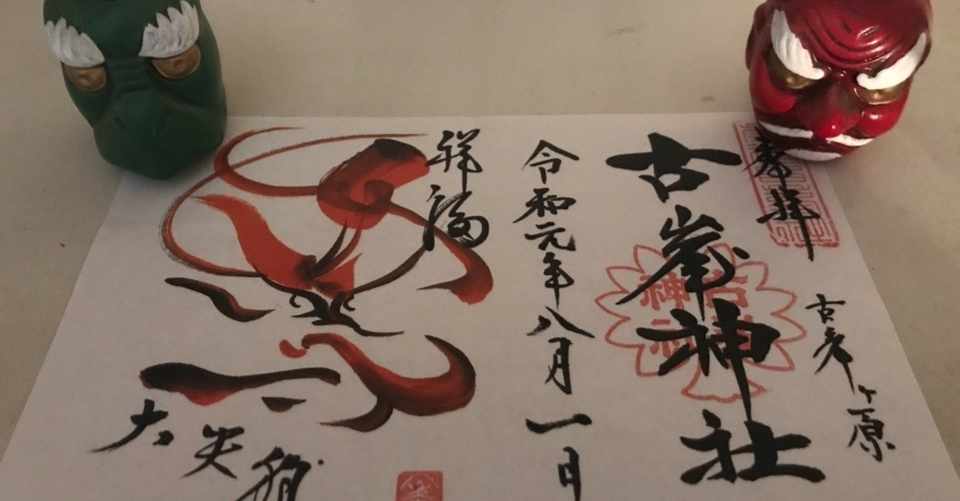 奉拝
古峯ヶ原
古峯神社
令和元年八月一日
祥福
大天狗